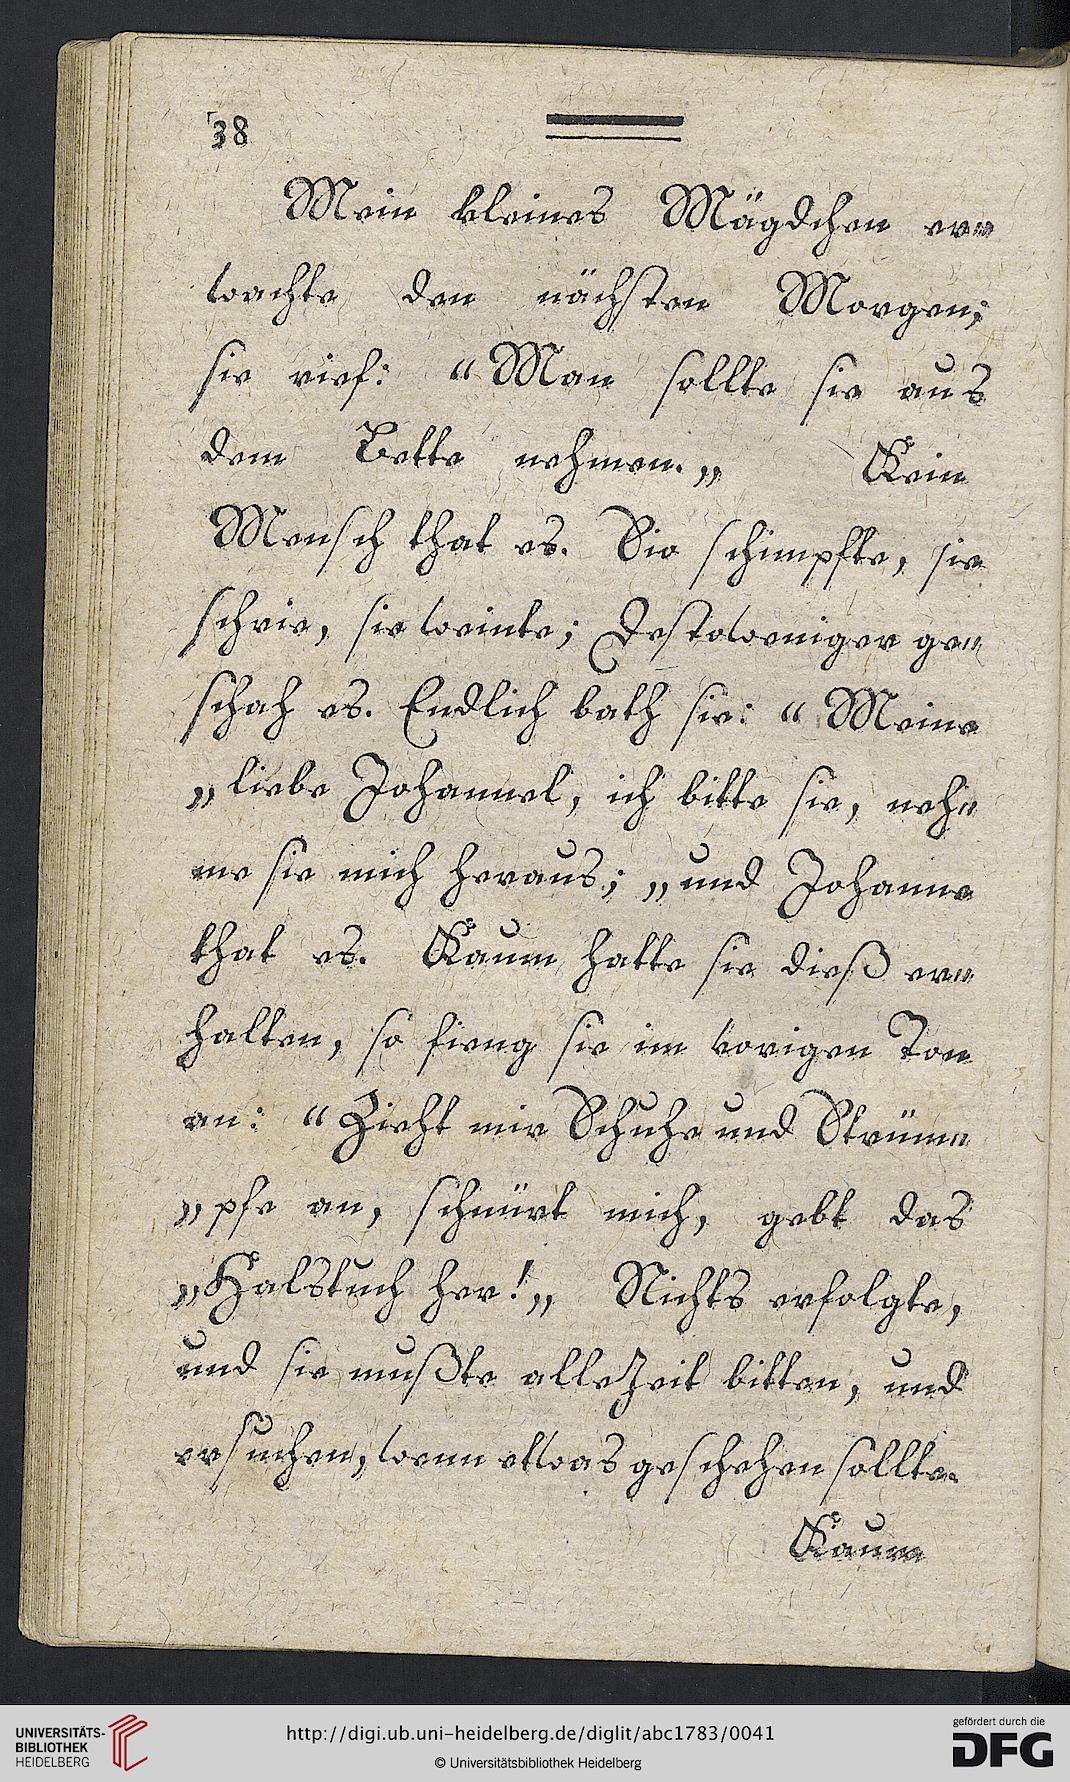 38
Mein kleines Mägdchen er=
wachte den nächsten Morgen;
sie rief: “Man sollte sie aus
dem Bette nehmen.„ Kein
Mensch that es. Sie schimpfte, sie
schrie, sie weinte; destoweniger ge=
schah es. Endlich bath sie: “Meine
„liebe Johannel, ich bitte sie, neh=
me sie mich heraus;„ und Johanne
that es. Kaum hatte sie dieß er=
halten, so fieng sie im vorigen Ton
an: “Zieht mir Schuhe und Strüm=
„pfe an, schnürt mich, gebt das
„Halstuch her!„ Nichts erfolgte,
und sie mußte allezeit bitten, und
ersuchen, wenn etwas geschehen sollte.
Kaum
UNIVERSITÄTS-
BIBLIOTHEK
HEIDELBERG
http://digi.ub.uni-heidelberg.de/diglit/abc1783/0041
© Universitätsbibliothek Heidelberg
gefördert durch die
DFG